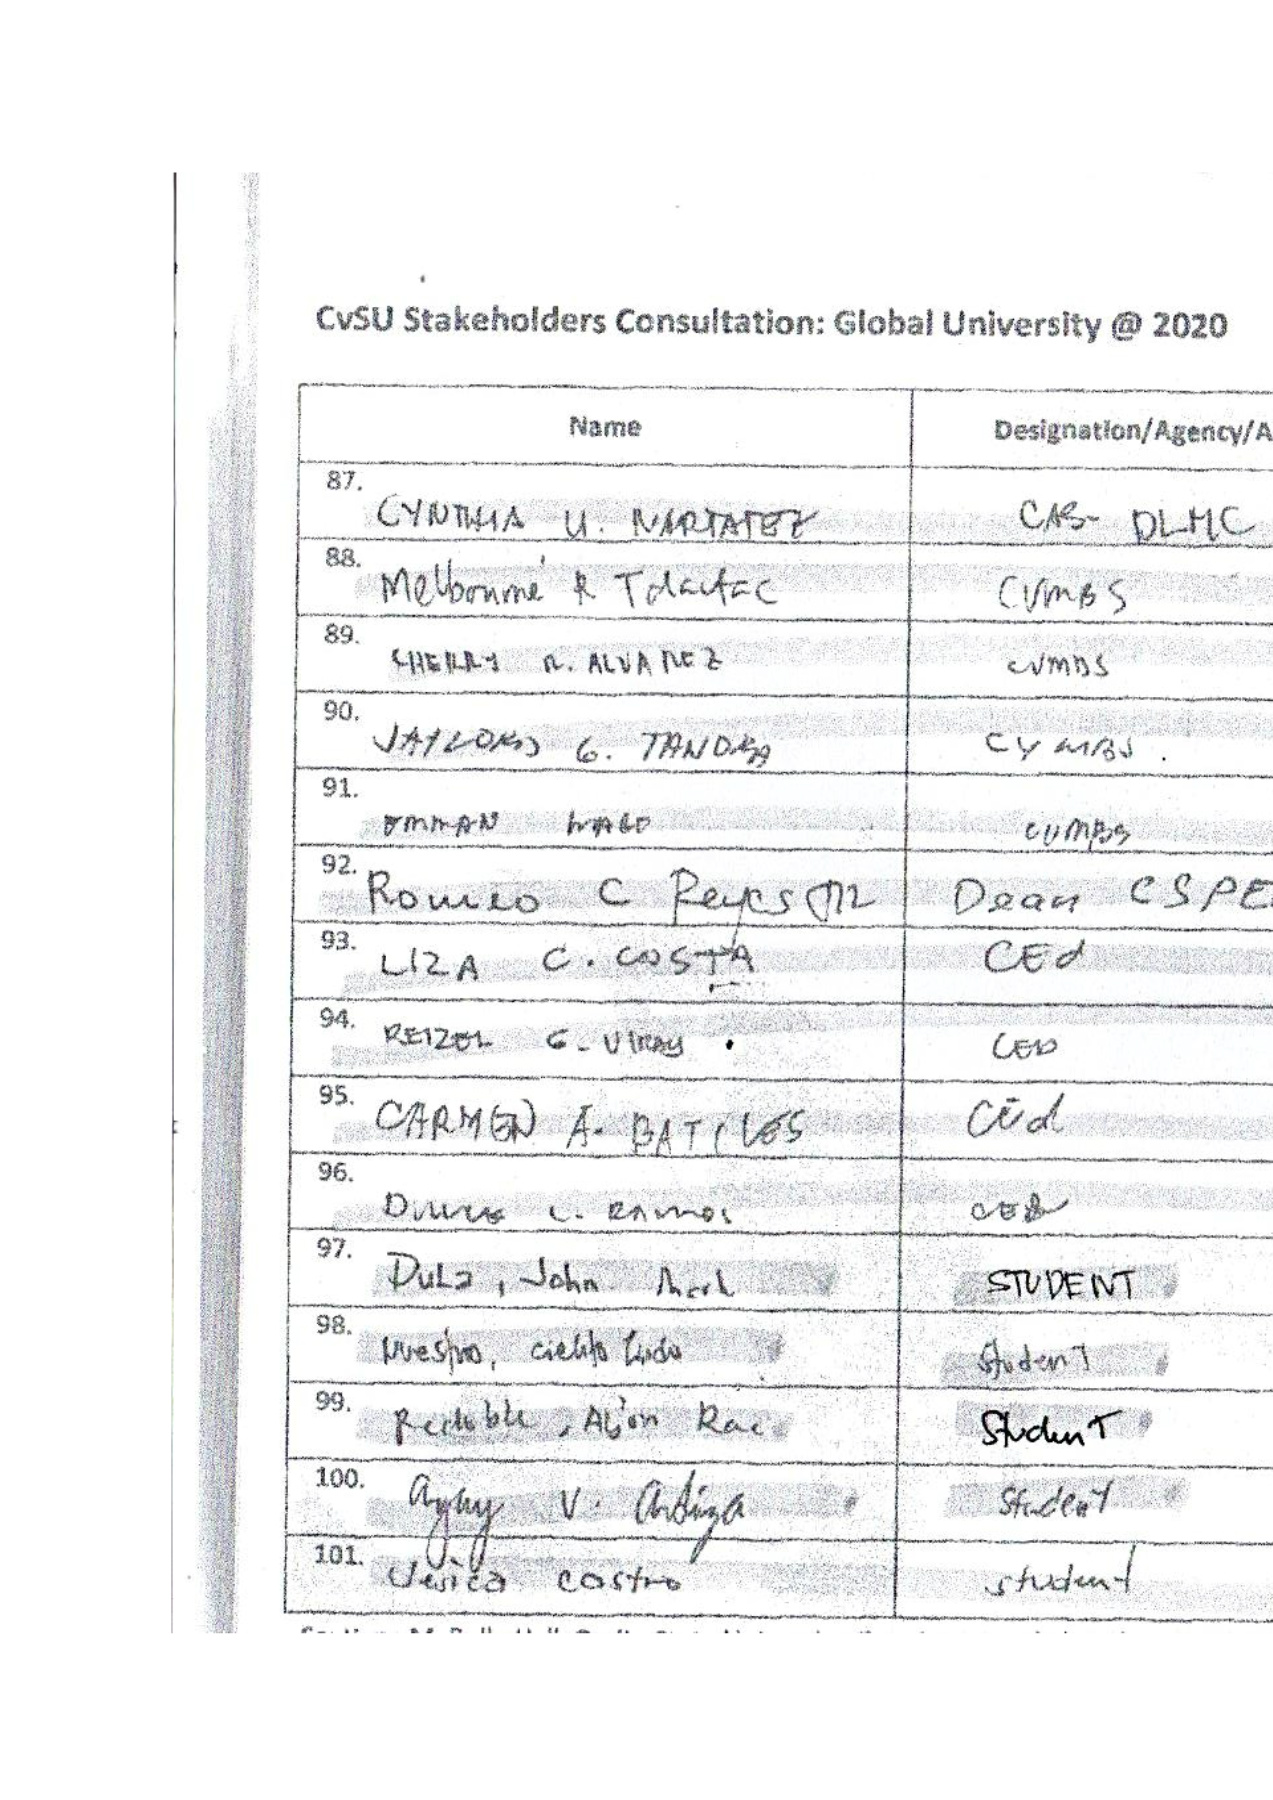 CvSU Stakeholders Consultation: Global University @ 2020
Name Designation/Agency/A
87. CYNTHIA U. NARTATEZ CAS- DLMC
88. Melbourne R CVMBS
89. CHERRY R. ALVAREZ CVMBS
90. G. CVMBS.
91. CVMBS
92. Romeo C Reyes JR Dean CSPE
93. LIZA C. COSTA CEd
94. REIZEL G. VIRAY CED
95. CARMEN A. BATILES CEd
96. RAMOS CED
97. John Mark STUDENT
98. Nuestro, cielito Lindo Student
99. Redoble, Rae Student
100. V. Student
101. Castro student